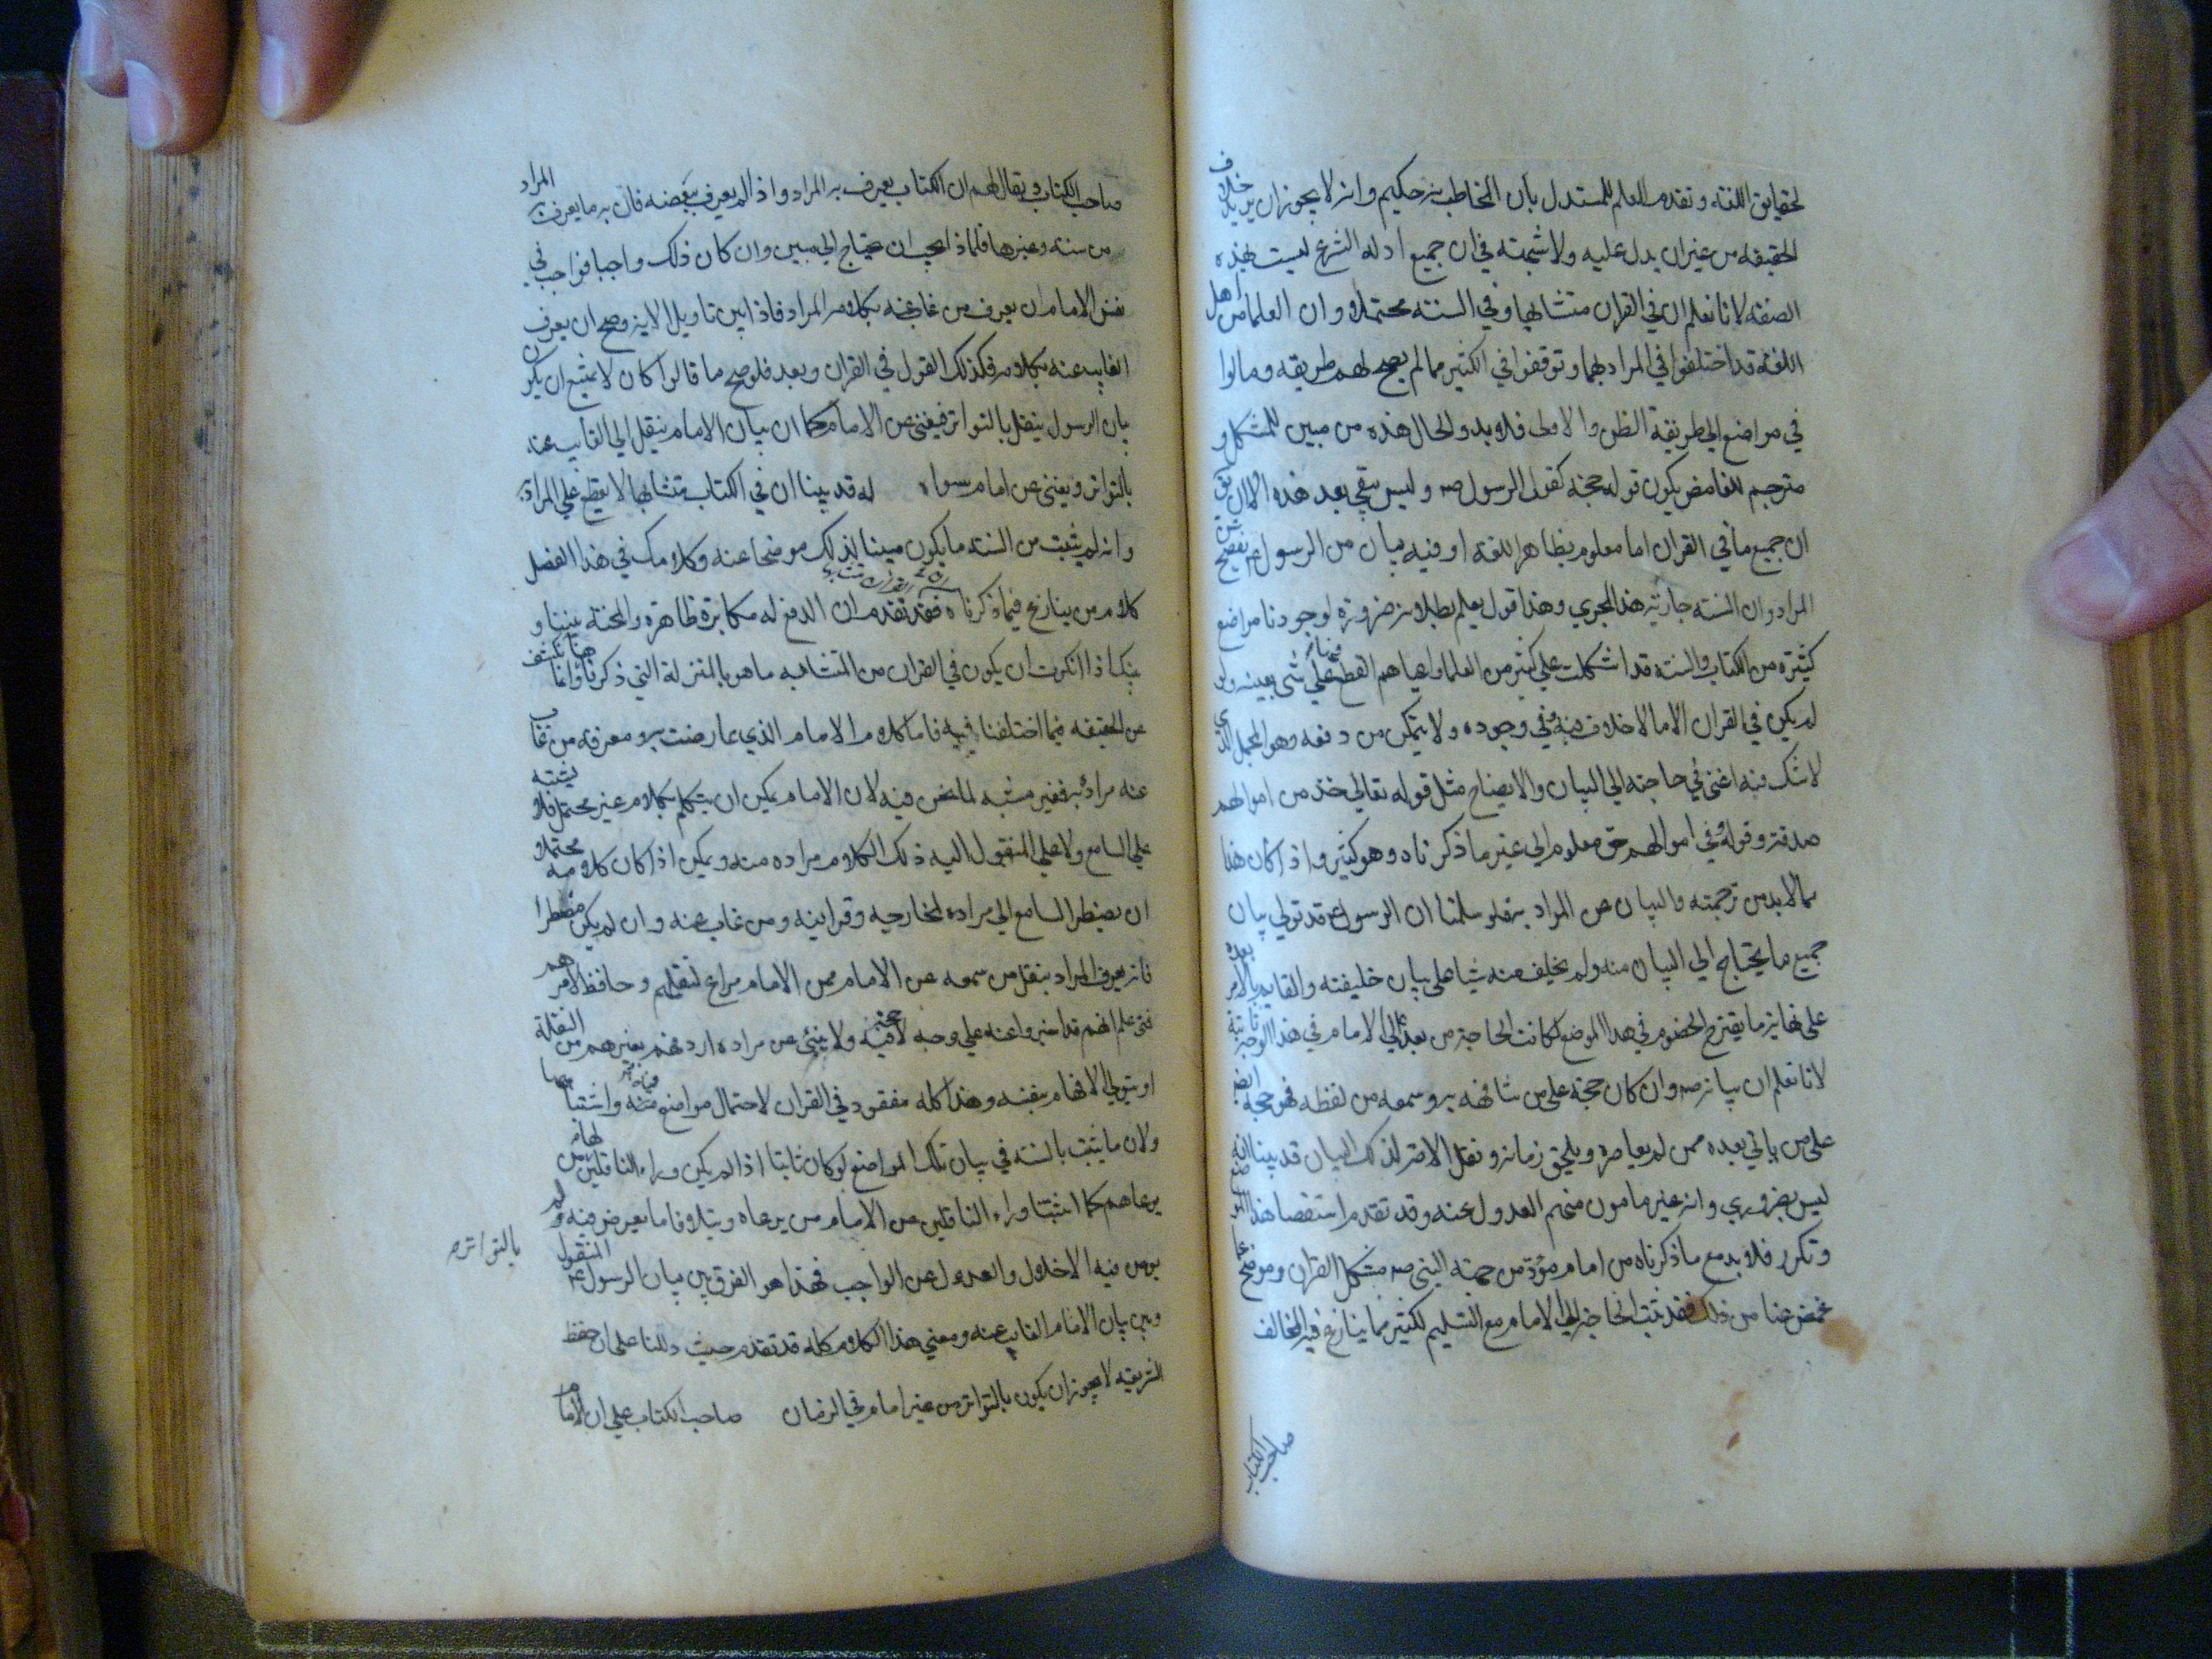 لحقايق اللغة وتقدم العلم للمستدل بان المخاطب به حكيم وانه لا يجوز ان يريد خلاف
الحقيقه من غير ان يدل عليه ولا شبهته في ان جميع ادله الشرع ليست بهذه
الصفه لانا نعلم ان في القران متشابها وفي السنته محتملا وان العلما من اهل
اللغه قد اختلفوا في المراد بهما وتوقفوا في الكثير مما لم يصح لهم طريقه ومالوا
في مواضع الي طريقة الظن والاولى فلا بد والحال هذه من مبين للمشكل و
مترجم للغامض يكون قوله حجه كقول الرسول صه وليس يبقي بعد هذه الا ان يق
ان جميع ما في القران اما معلوم بظاهر اللغة او فيه بيان من الرسول عم يفصح عن
المراد وان السنته جاريه هذا المجري وهذا قول يعلم بطلانه ضرورة لوجودنا مواضع
كثيره من الكتاب والسنه قد اشكلت علي كثير من العلما واعياهم القطع علي شي بعينه ولو
لم يكن في القران الا ما لا خلاف فيه وفي وجوده ولا يتمكن من دفعه وهو المجمل الذي
لا شك فيه اغني في حاجته الي البيان والايضاح مثل قوله تعالي خذ من اموالهم
صدقة وقوله وفي اموالهم حق معلوم الي غير ما ذكرناه وهو كثير واذا كان هذا
مما لا بد من ترجمته والبيان عن المراد به فلو سلمنا ان الرسول عم قد تولي بيان
جميع ما يحتاج الي البيان منه ولم يخلف منه شيا علي بيان خليفته والقايم بالامر بعده
علي نهاية ما يقترح الخصوم في هذا الموضع لكانت الحاجة من بعد الي الامام في هذا الوجه ثابتة
لانا نعلم ان بيانه صه وان كان حجة علي من شافهه به وسمعه من لفظه فهو حجة ايض
علي من ياتي بعده ممن لم يعاصره ويلحق زمانه ونقل الامة لذلك البيان قد بينا انه
ليس بضروري وانه غير مامون منهم العدول عنه وقد تقدم استقصا هذا الموضع
وتكرر فلا بد مع ما ذكرناه من امام مؤد من جهته النبي صه مشكل القران وموضح عما
غمض عنا من ذلك فقد ثبت الحاجه الي الامام مع التسليم لكثير مما ينازع فيه المخالف
صاحب الكتاب
صاحب الكتاب ويقال لهم ان الكتاب يعرف به المراد واذا لم يعرف ببعضه فان به ما يعرف به المراد
من سنته وغيرها فلماذا يجب ان يحتاج الي مبين وان كان ذلك واجبا فواجب في
نفس الامام ان يعرف من غاب عنه بكلامه المراد فاذا بين تاويل الاية وصح ان يعرف
الغايب عنه بكلامه فكذلك القول في القران وبعد فلو صح ما قالوا كان لا يمتنع ان يكون
بيان الرسول ينقل بالتواتر فيغني عن الامام كما ان بيان الامام ينقل الي الغايب عنه
بالتواتر ويغني عن امام سواه له قد بينا ان في الكتاب متشابها لا يقطع علي المراد به
وانه لم يثبت من السنته ما يكون مبينا لذلك موضحا عنه وكلامك في هذا الفصل
كلام من ينازع فيما ذكرناه فقد تقدم ان الدفع له مكابرة ظاهرة والمحنة بيننا و
بينك اذا انكرت ان يكون في القران من المتشابه ما هو بالمنزلة التي ذكرناها وانما تكشف
عن الحقيقه فيما اختلفنا فيه فاما كلام الامام الذي عارضت به ومعرفه من غاب
عنه مراده به فغير مشبه لما نحن فيه لان الامام يمكن ان يتكلم بكلام غير محتمل فلا يشتبه
علي السامع ولا علي المنقول اليه ذلك الكلام مراده منه ويمكن اذا كان كلامه محتملا
ان يضطر السامع الي مراده لمخارجه وقراينه ومن غاب عنه وان لم يكن مضطرا
فانه يعرف المراد بنقل من سمعه عن الامام ممن الامام مراع لنقلهم وحافظ لامرهم
فمتى علم انهم قد اخبروا عنه علي وجه لا حجه فيه ولا ينبئ عن مراده اردفهم بغيرهم من النقلة
او يتولي الافهام بنفسه وهذا كله مفقود في القران لاحتمال مواضع منه واشتباهها
ولان ما يثبت بالسنه في بيان تلك المواضع لو كان ثابتا اذا لم يكن وراء الناقلين لها من
يرعاهم كما اثبتنا وراء الناقلين عن الامام من يرعاه ويتلافا ما يعرض فيه لم
يومن فيه الاخلال والعدول عن الواجب فهذا هو الفرق بين بيان الرسول عم المنقول
بالتواتر صه
وبين بيان الامام الغايب عنه ومعني هذا الكلام كله قد تقدم حيث دللنا علي ان حفظ
الشريعه لا يجوز ان يكون بالتواتر من غير امام في الزمان صاحب الكتاب علي ان الامام